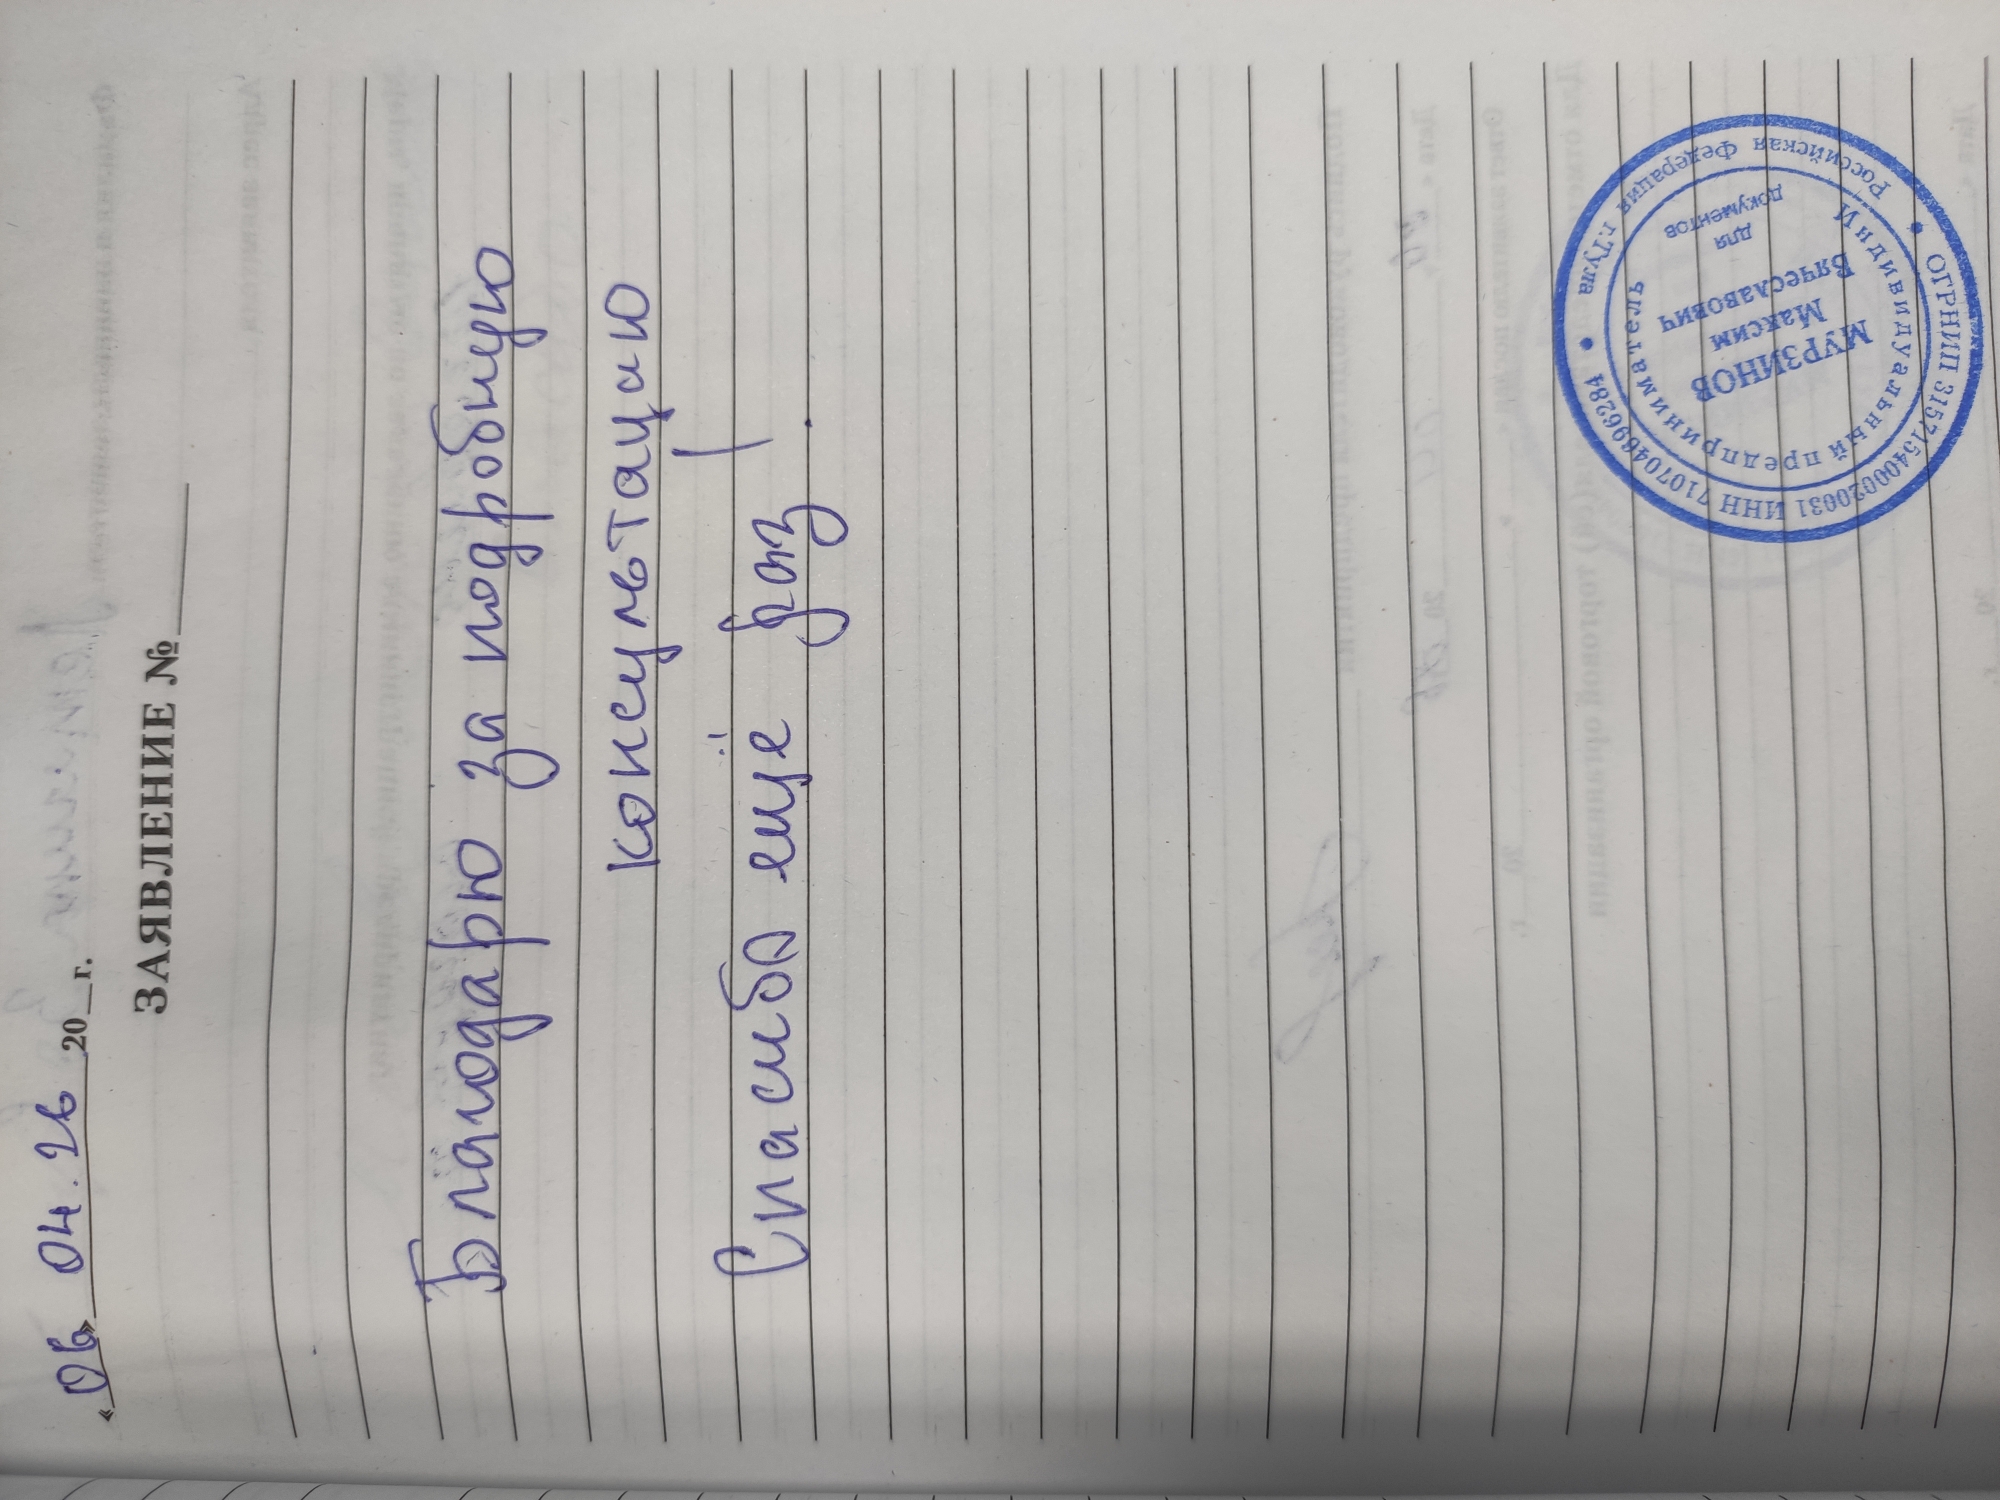 «06» 04. 26 20__г.
ЗАЯВЛЕНИЕ №
Благодарю за подробную
консультацию
Спасибо ещё раз!
Российская Федерация г.Тула
ОГРНИП 315715400020031 ИНН 710704696284
Индивидуальный предприниматель
МУРЗИНОВ
Максим
Вячеславович
для
документов